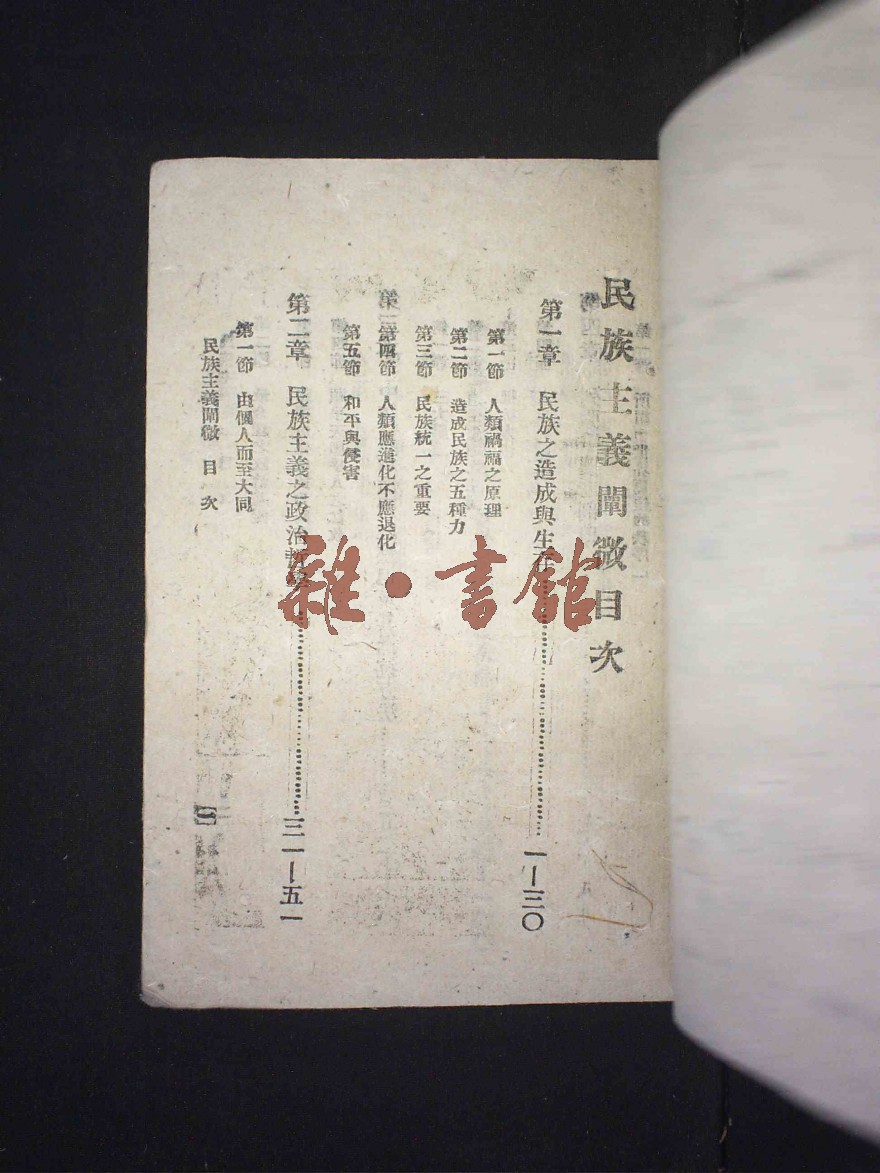 民族主義闡微目次
第一章 民族之造成與生存……一—三〇
第一節 人類禍福之原理
第二節 造成民族之五種力
第三節 民族統一之重要
第四節 人類應進化不應退化
第五節 和平與侵害
第二章 民族主義之政治哲學……三一—五一
第一節 由個人而至大同
民族主義闡微 目次
雜·書館